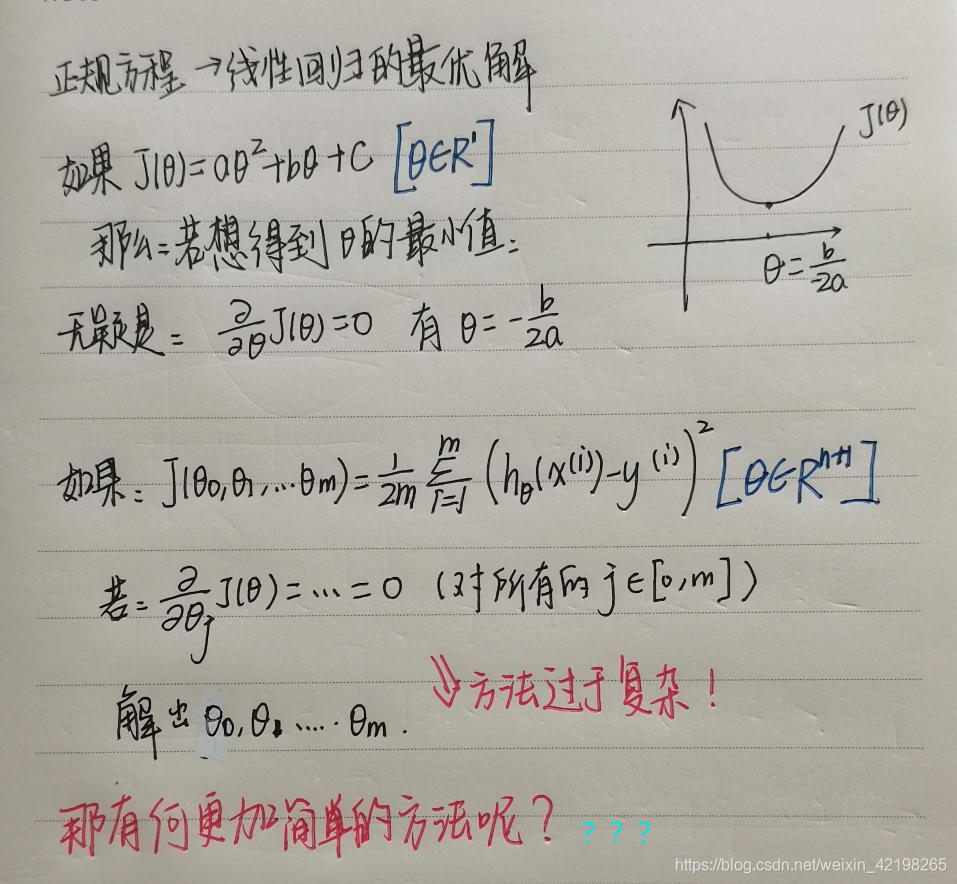 正规方程 →线性回归的最优解
如果 J(θ)=aθ²+bθ+C [θ∈R¹]
J(θ)
那么:若想得到θ的最小值:
θ=b/-2a
无疑是: ∂/∂θ J(θ)=0 有 θ=-b/2a
如果: J(θ₀,θ₁,...θm)=1/2m ∑_{i=1}^{m} (hθ(x⁽ⁱ⁾)-y⁽ⁱ⁾)² [θ∈Rⁿ⁺¹]
若: ∂/∂θj J(θ)=...=0 (对所有的 j∈[0,m])
⇓方法过于复杂!
解出 θ₀,θ₁.....θm.
那有何更加简单的方法呢? ???
https://blog.csdn.net/weixin_42198265